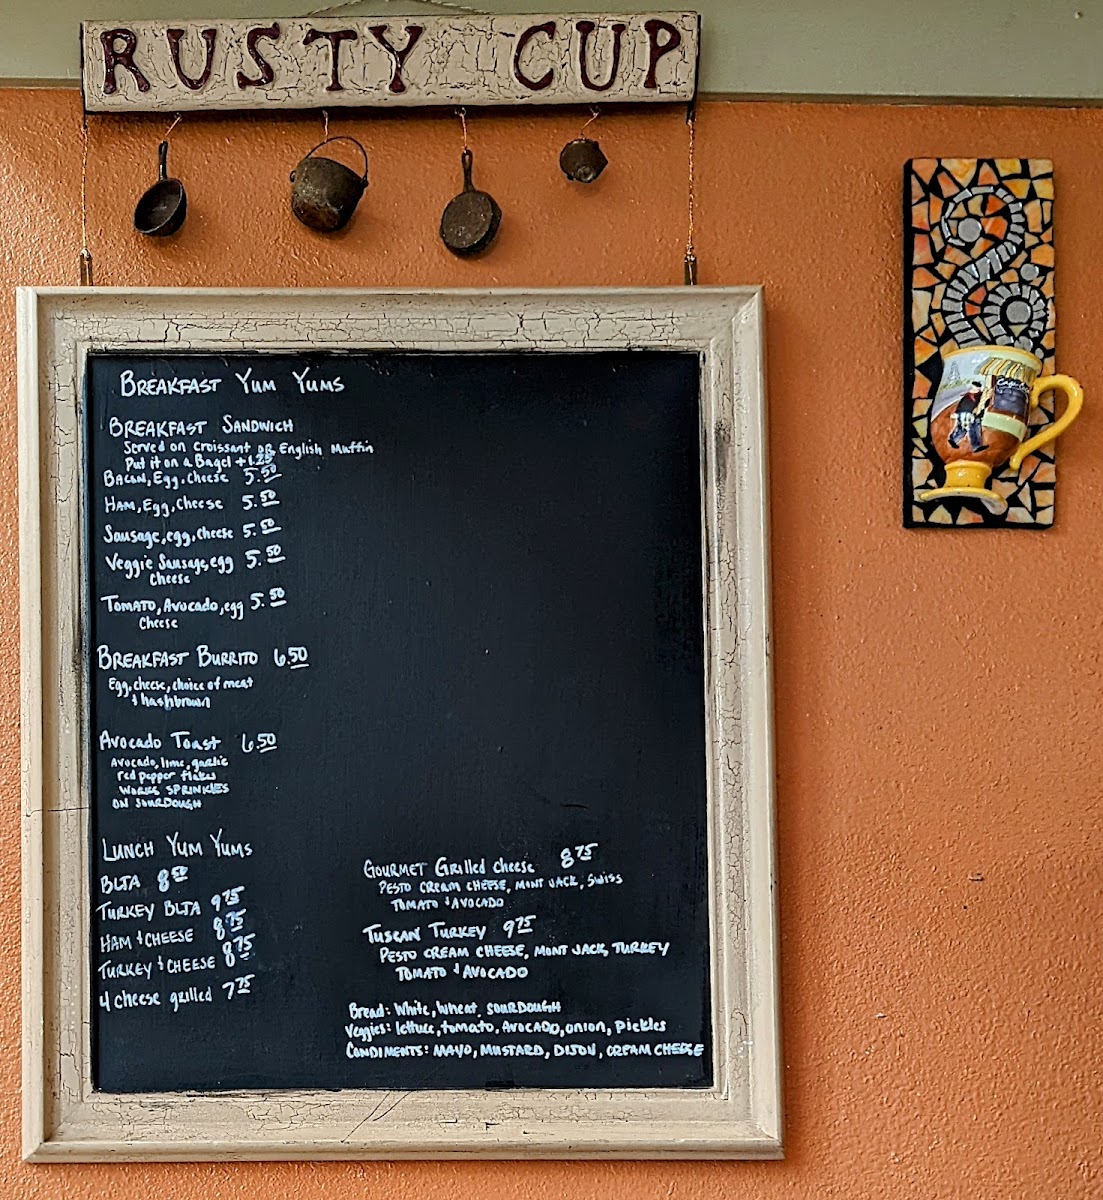 RUSTY CUP
BREAKFAST YUM YUMS
BREAKFAST SANDWICH
Served on croissant OR English Muffin
Put it on a Bagel +1.25
BACON, Egg, Cheese 5.50
HAM, Egg, Cheese 5.50
Sausage, egg, cheese 5.50
Veggie Sausage, egg 5.50
Cheese
TOMATO, Avocado, egg 5.50
Cheese
BREAKFAST BURRITO 6.50
Egg, cheese, choice of meat
& hashbrown
Avocado Toast 6.50
Avocado, lime, garlic
red pepper flakes
WORKS SPRINKLES
ON SOURDOUGH
LUNCH YUM YUMS
BLTA 8.50
TURKEY BLTA 9.75
HAM & CHEESE 8.75
TURKEY & CHEESE 8.75
4 cheese grilled 7.75
GOURMET Grilled cheese 8.75
PESTO CREAM CHEESE, MONT JACK, SWISS
TOMATO & AVOCADO
TUSCAN TURKEY 9.75
PESTO CREAM CHEESE, MONT JACK, TURKEY
TOMATO & AVOCADO
Bread: White, Wheat, SOURDOUGH
Veggies: lettuce, tomato, AVOCADO, onion, Pickles
CONDIMENTS: MAYO, MUSTARD, DIJON, CREAM CHEESE